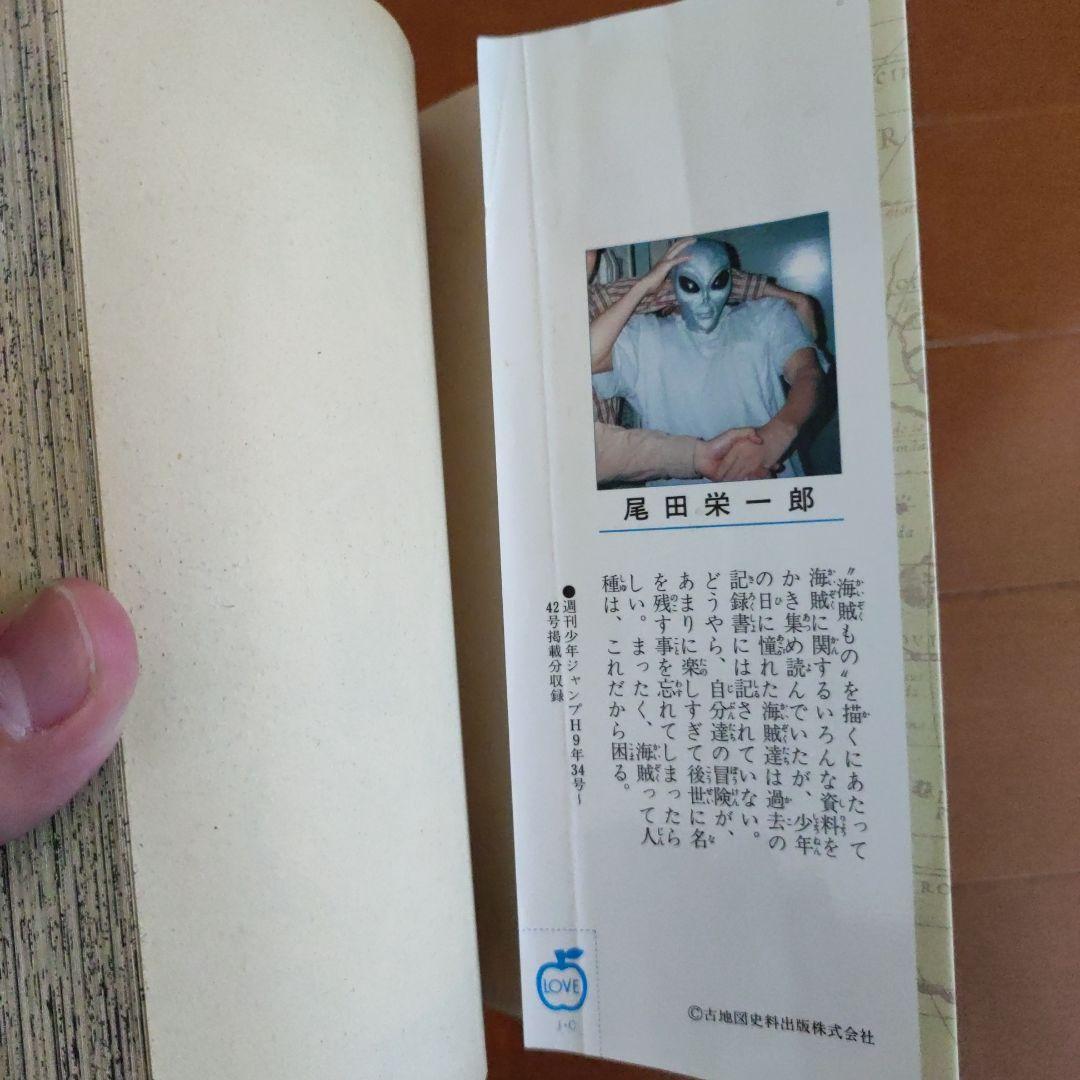 尾田栄一郎
〝海賊もの〟を描くにあたって
海賊に関するいろんな資料を
かき集め読んでいたが、少年
の日に憧れた海賊達は過去の
記録書には記されていない。
どうやら、自分達の冒険が、
あまりに楽しすぎて後世に名
を残す事を忘れてしまったら
しい。まったく、海賊って人
種は、これだから困る。
●週刊少年ジャンプH9年34号~
42号掲載分収録
LOVE
J・C
©古地図史料出版株式会社